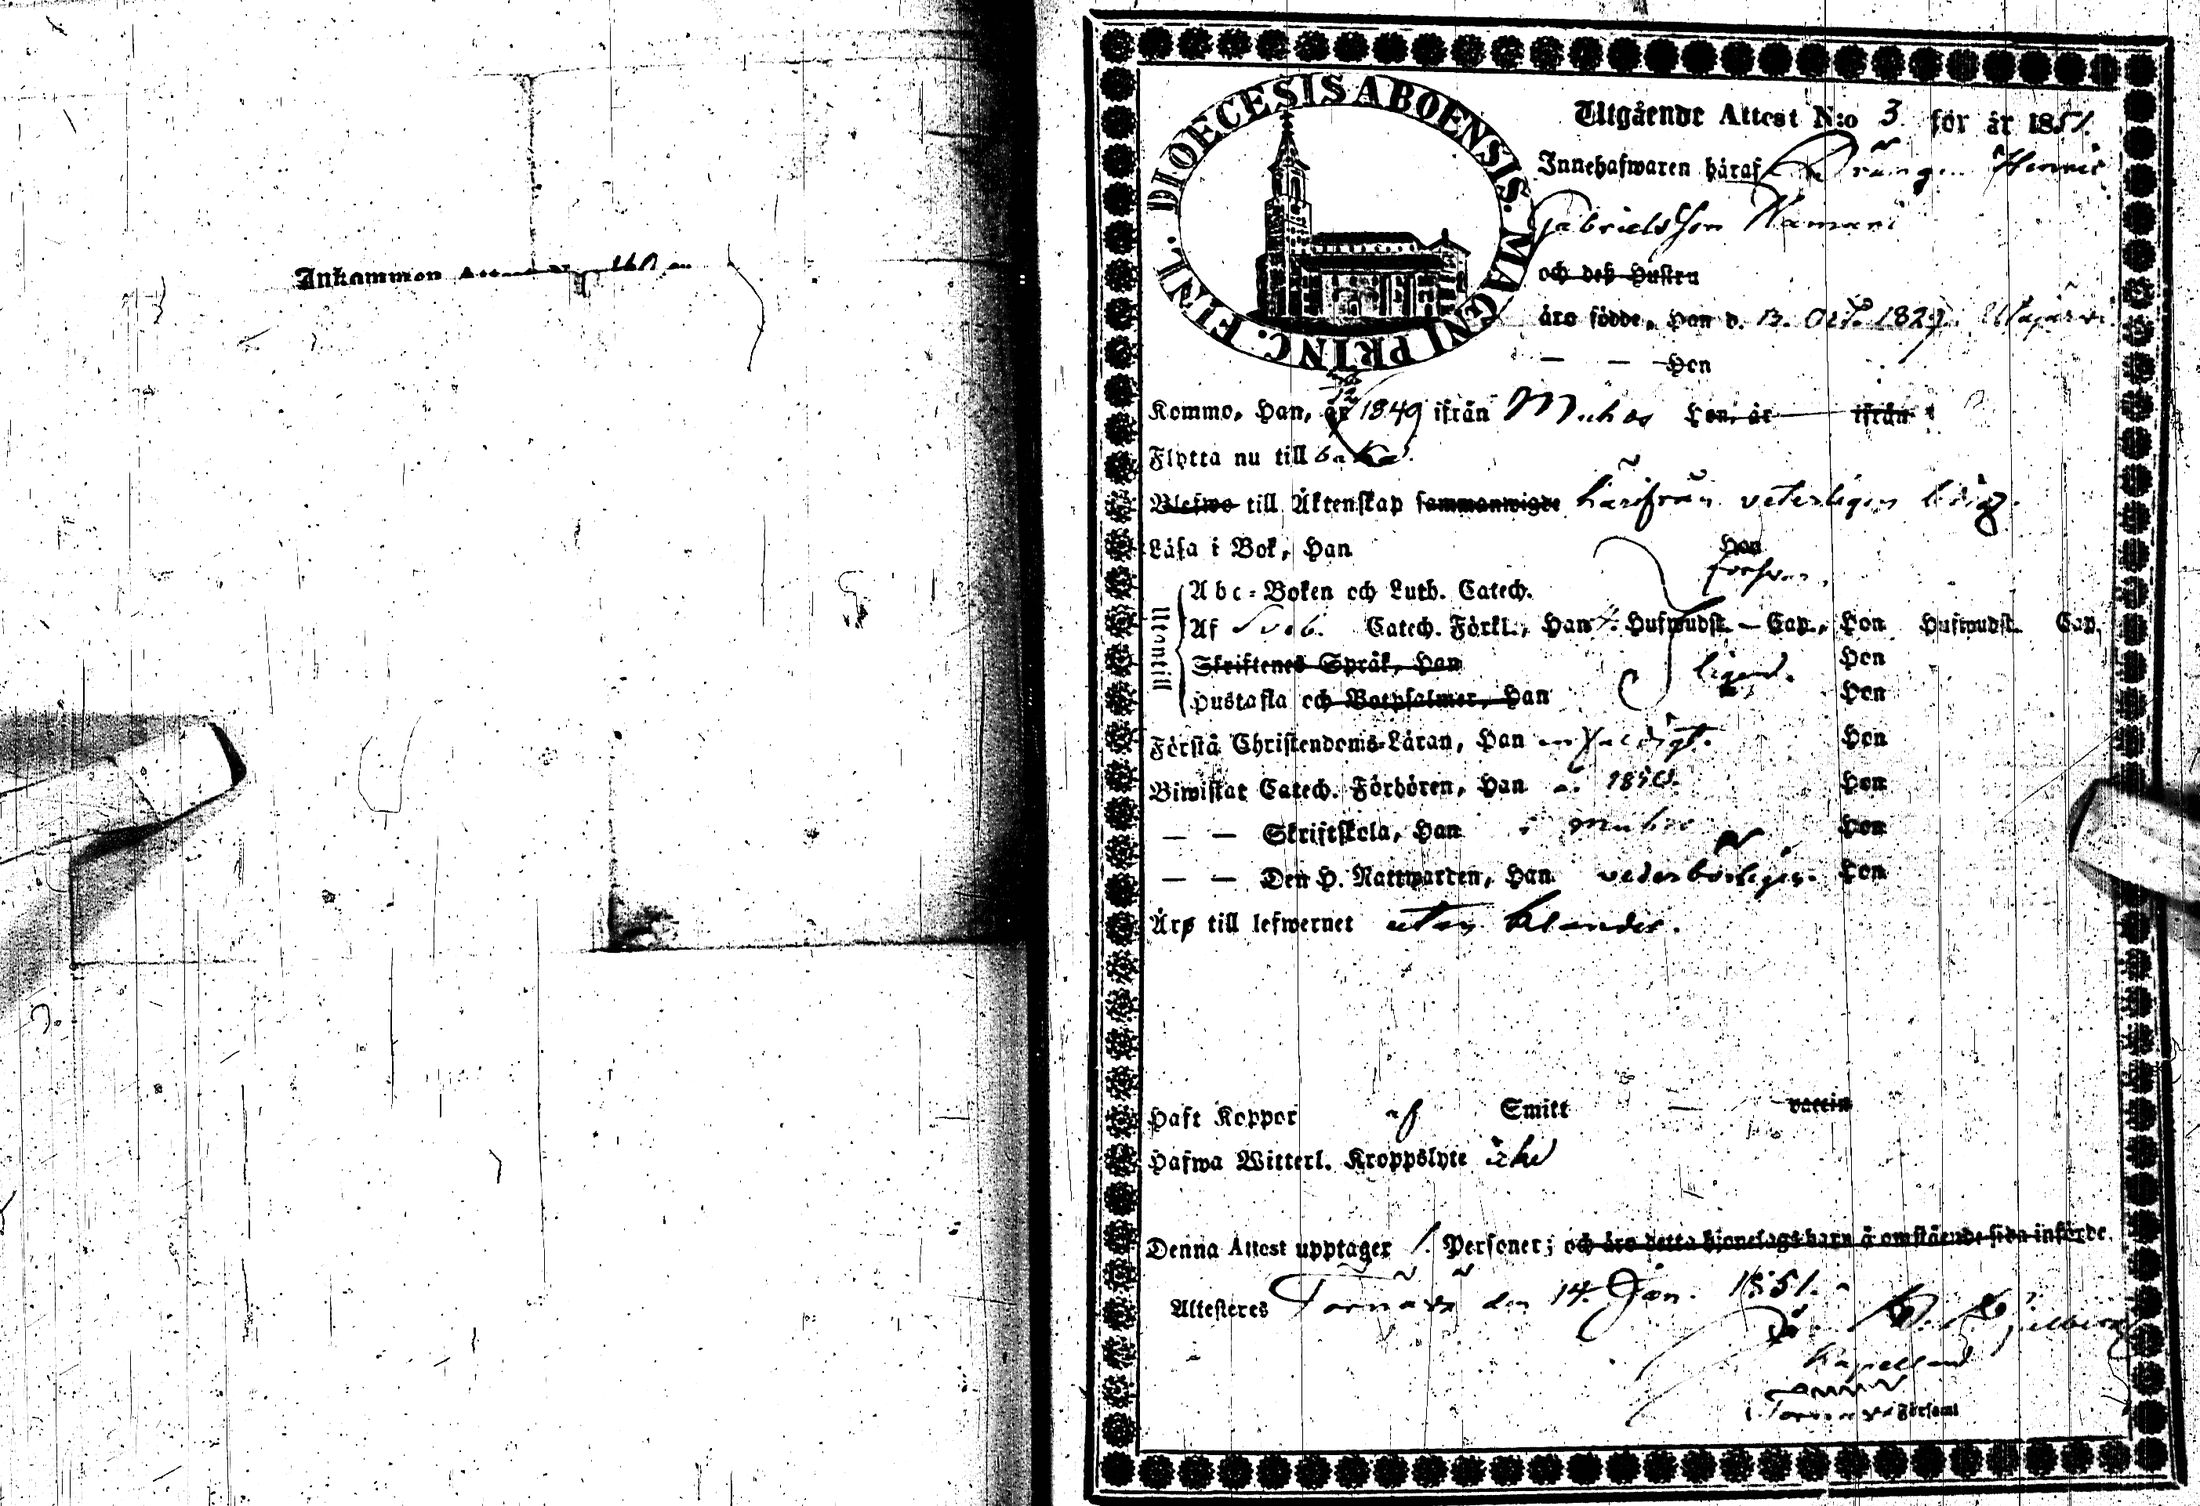 Inkommen
DIOECESIS ABOENSIS. MAGNI PRINC. FINL.
Utgående Attest N:o 3 för år 1851.
Innehafwaren häraf, Drängen Henric
Gabrielsson Hamari
och deß Hustru
äro födde, Han d. 13. Oct. 1829. Utajärvi
— — Hon
Kommo, Han, år 1849 ifrån Muhos hon, år — ifrån
Flytta nu till baka.
Blefwo till Äktenskap sammanwigde härifrån veterligen ledig.
Läsa i Bok, Han Hon
Utantill
Abc-Boken och Luth. Catech. försvar-
Af Sveb. Catech. Förkl., Han Hufwudst. — Cap., Hon Hufwudst. Cap.
Skriftenes Språk, Han ligend. Hon
Hustafla och Botpsalmer, Han Hon
Förstå Christendoms-Läran, Han enfaldigt. Hon
Biwistat Catech. Förhören, Han 1850. Hon
— — Skriftskola, Han i Muhos Hon
— — Den H. Nattwarden, Han vederbörligen. Hon
Äro till lefwernet utan klander.
Haft Koppor af Smitt — vaccin
Hafwa Witterl. Kroppslyte icke
Denna Attest upptager 1. Personer; och äro detta hjonelags barn å omstående sida införde.
Attesteres Tornävä den 14. Jan. 1851.
Kapellans
Tornävä Församl